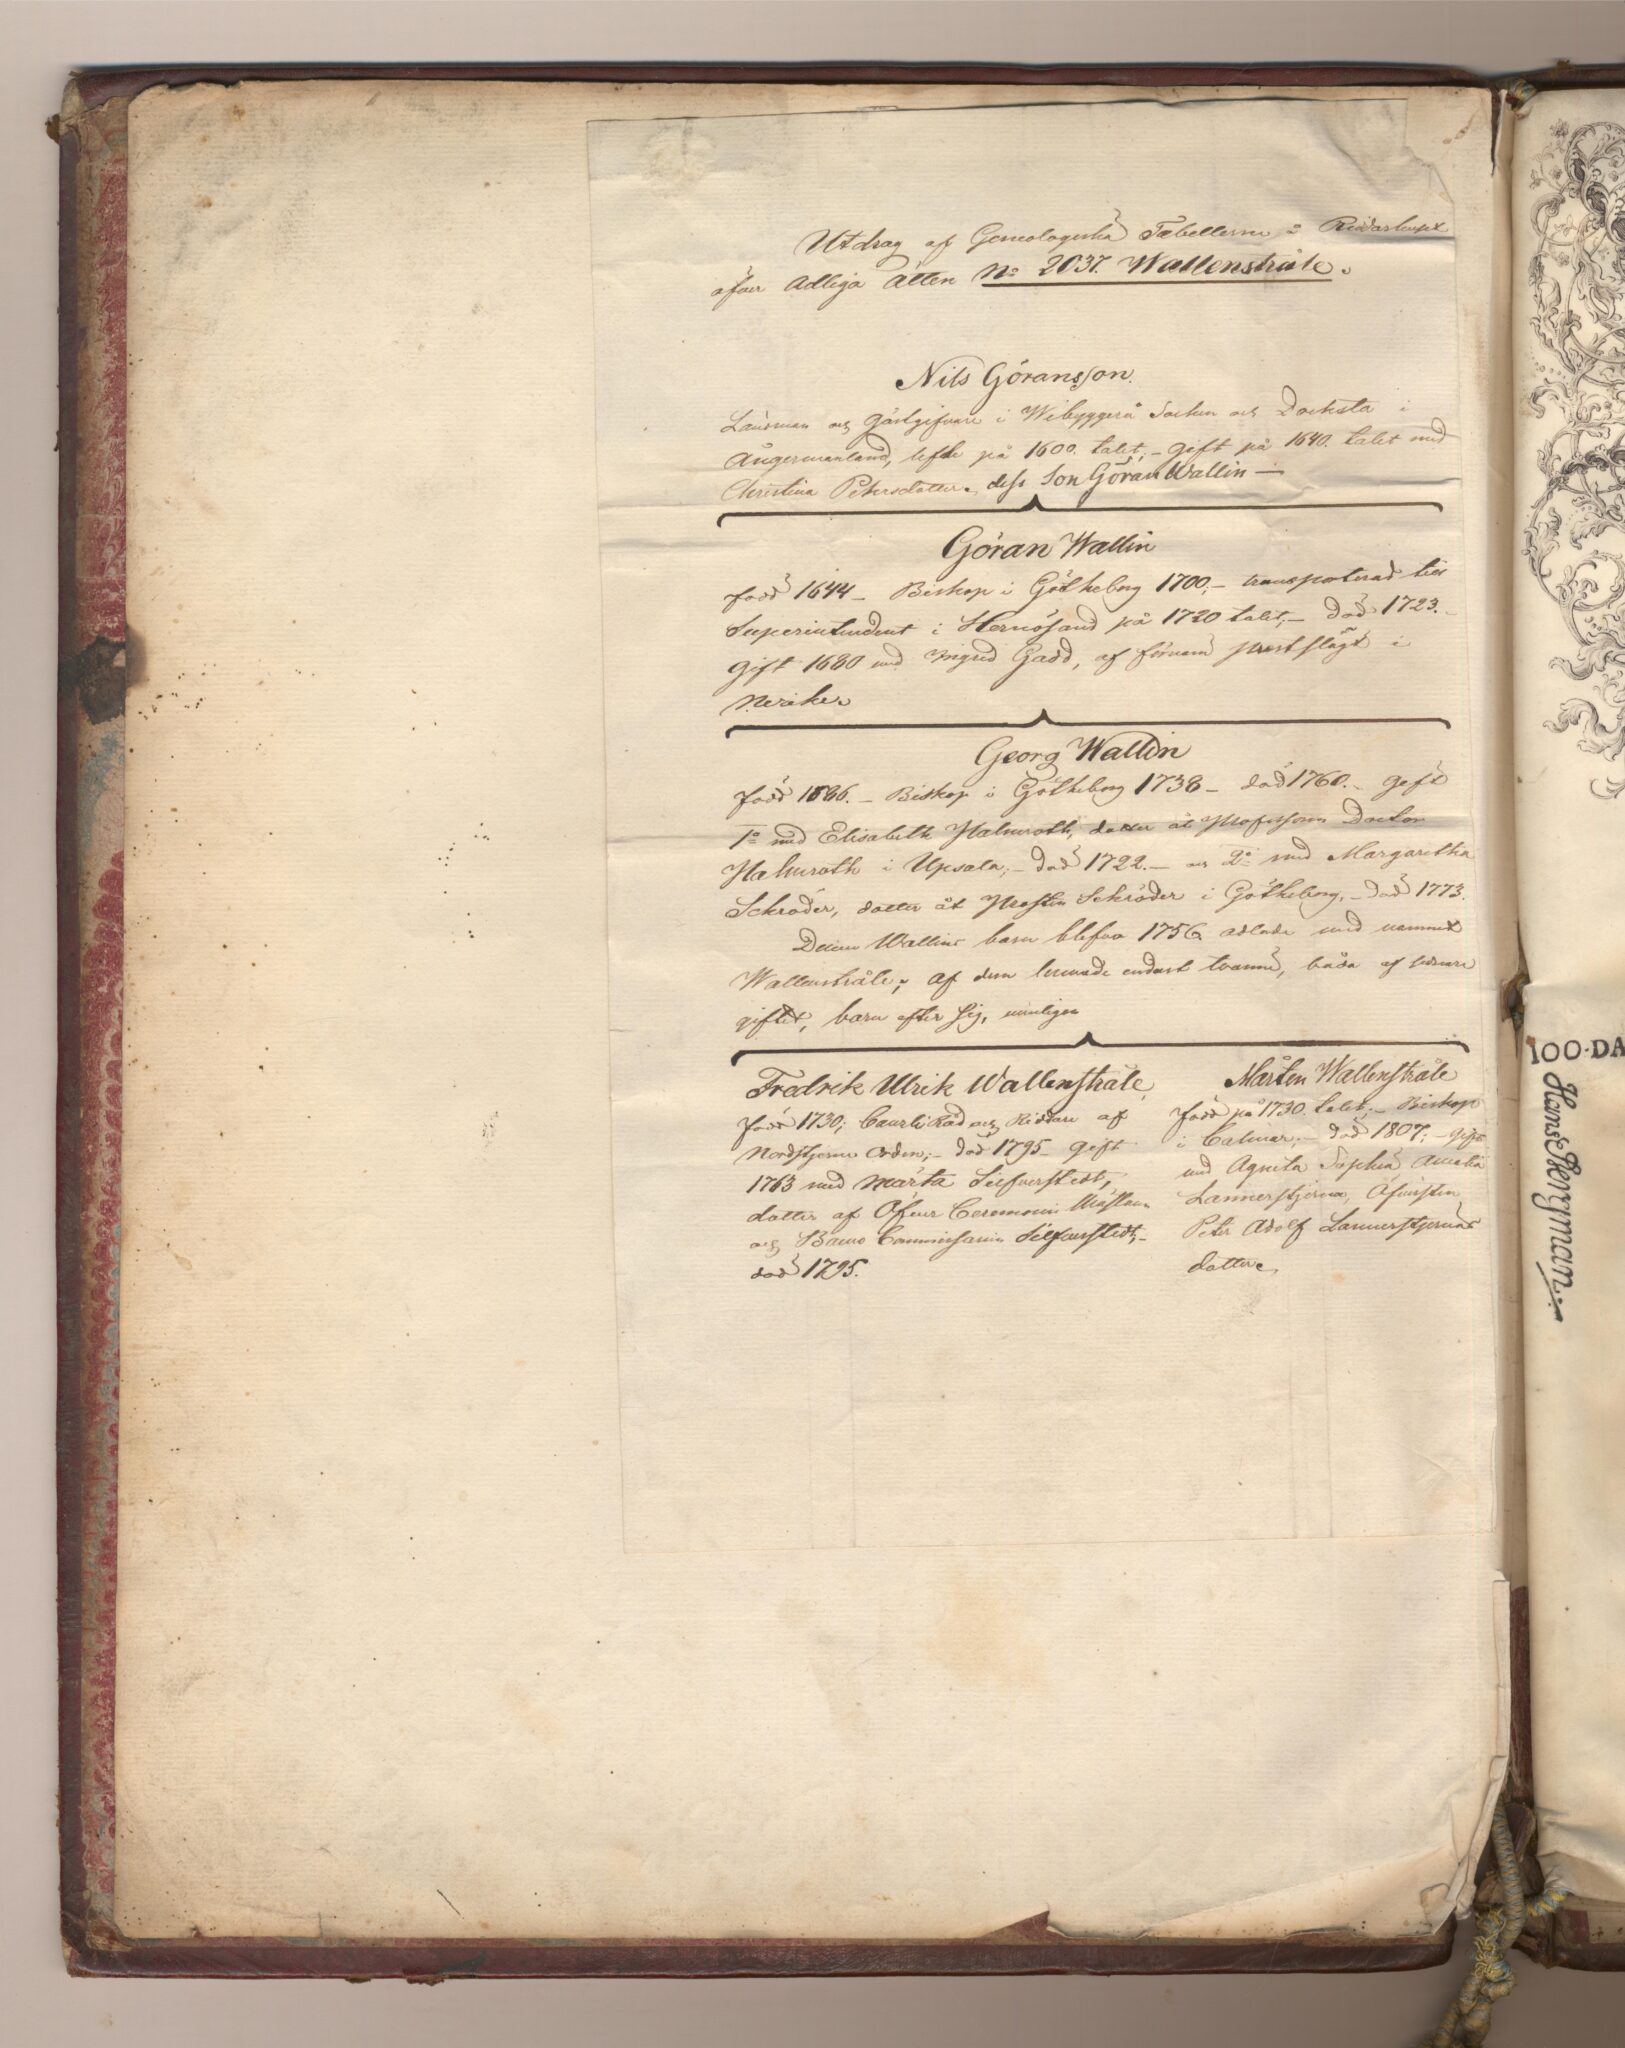 Utdrag af Genealogiska Tabellerna å Riddarhuset
öfver Adliga Ätten No 2037. Wallenstråle.
Nils Göransson.
Länsman och Gästgifvare i Wibyggerå Socken och Docksta i
Ångermanland, lefde på 1600. talet; – gift på 1640. talet med
Christina Petersdotter. dess Son Göran Wallin –
Göran Wallin
född 1644 – Biskop i Götheborg 1700; – transporterad till
Superintendent i Hernösand på 1720 talet; – död 1723. –
Gift 1680 med Ingrid Gadd, af förnäm prest slägt i
Nerike.
Georg Wallin
född 1686. – Biskop i Götheborg 1738 – död 1760. – gift
1o med Elisabeth Halmroth, dotter åt Professorn Doctor
Halmroth i Upsala; – död 1722. – och 2o med Margaretha
Schröder, dotter åt Prosten Schröder i Götheborg, – död 1773.
Denne Wallins barn blefvo 1756 adlade med namnet
Wallenstråle; af dem lemnade endast tvänne, båda af senare
giftet, barn efter sig, nemligen
Fredrik Ulrik Wallenstråle,
född 1730; Cansli Råd och Riddare af
Nordstjerne Orden; – död 1795 – gift
1763 med Märta Silfverstedt,
dotter af Öfver Ceremonie Mästaren
och Banco Commissarien Silfverstedt, –
död 1795.
Mårten Wallenstråle
född på 1730. talet; – Biskop
i Calmar; – död 1807; – gift
med Agneta Sophia Amalia
Lannerstjerna, Öfversten
Peter Adolf Lannerstjernas
dotter.
100·DA
Hans Bergman.